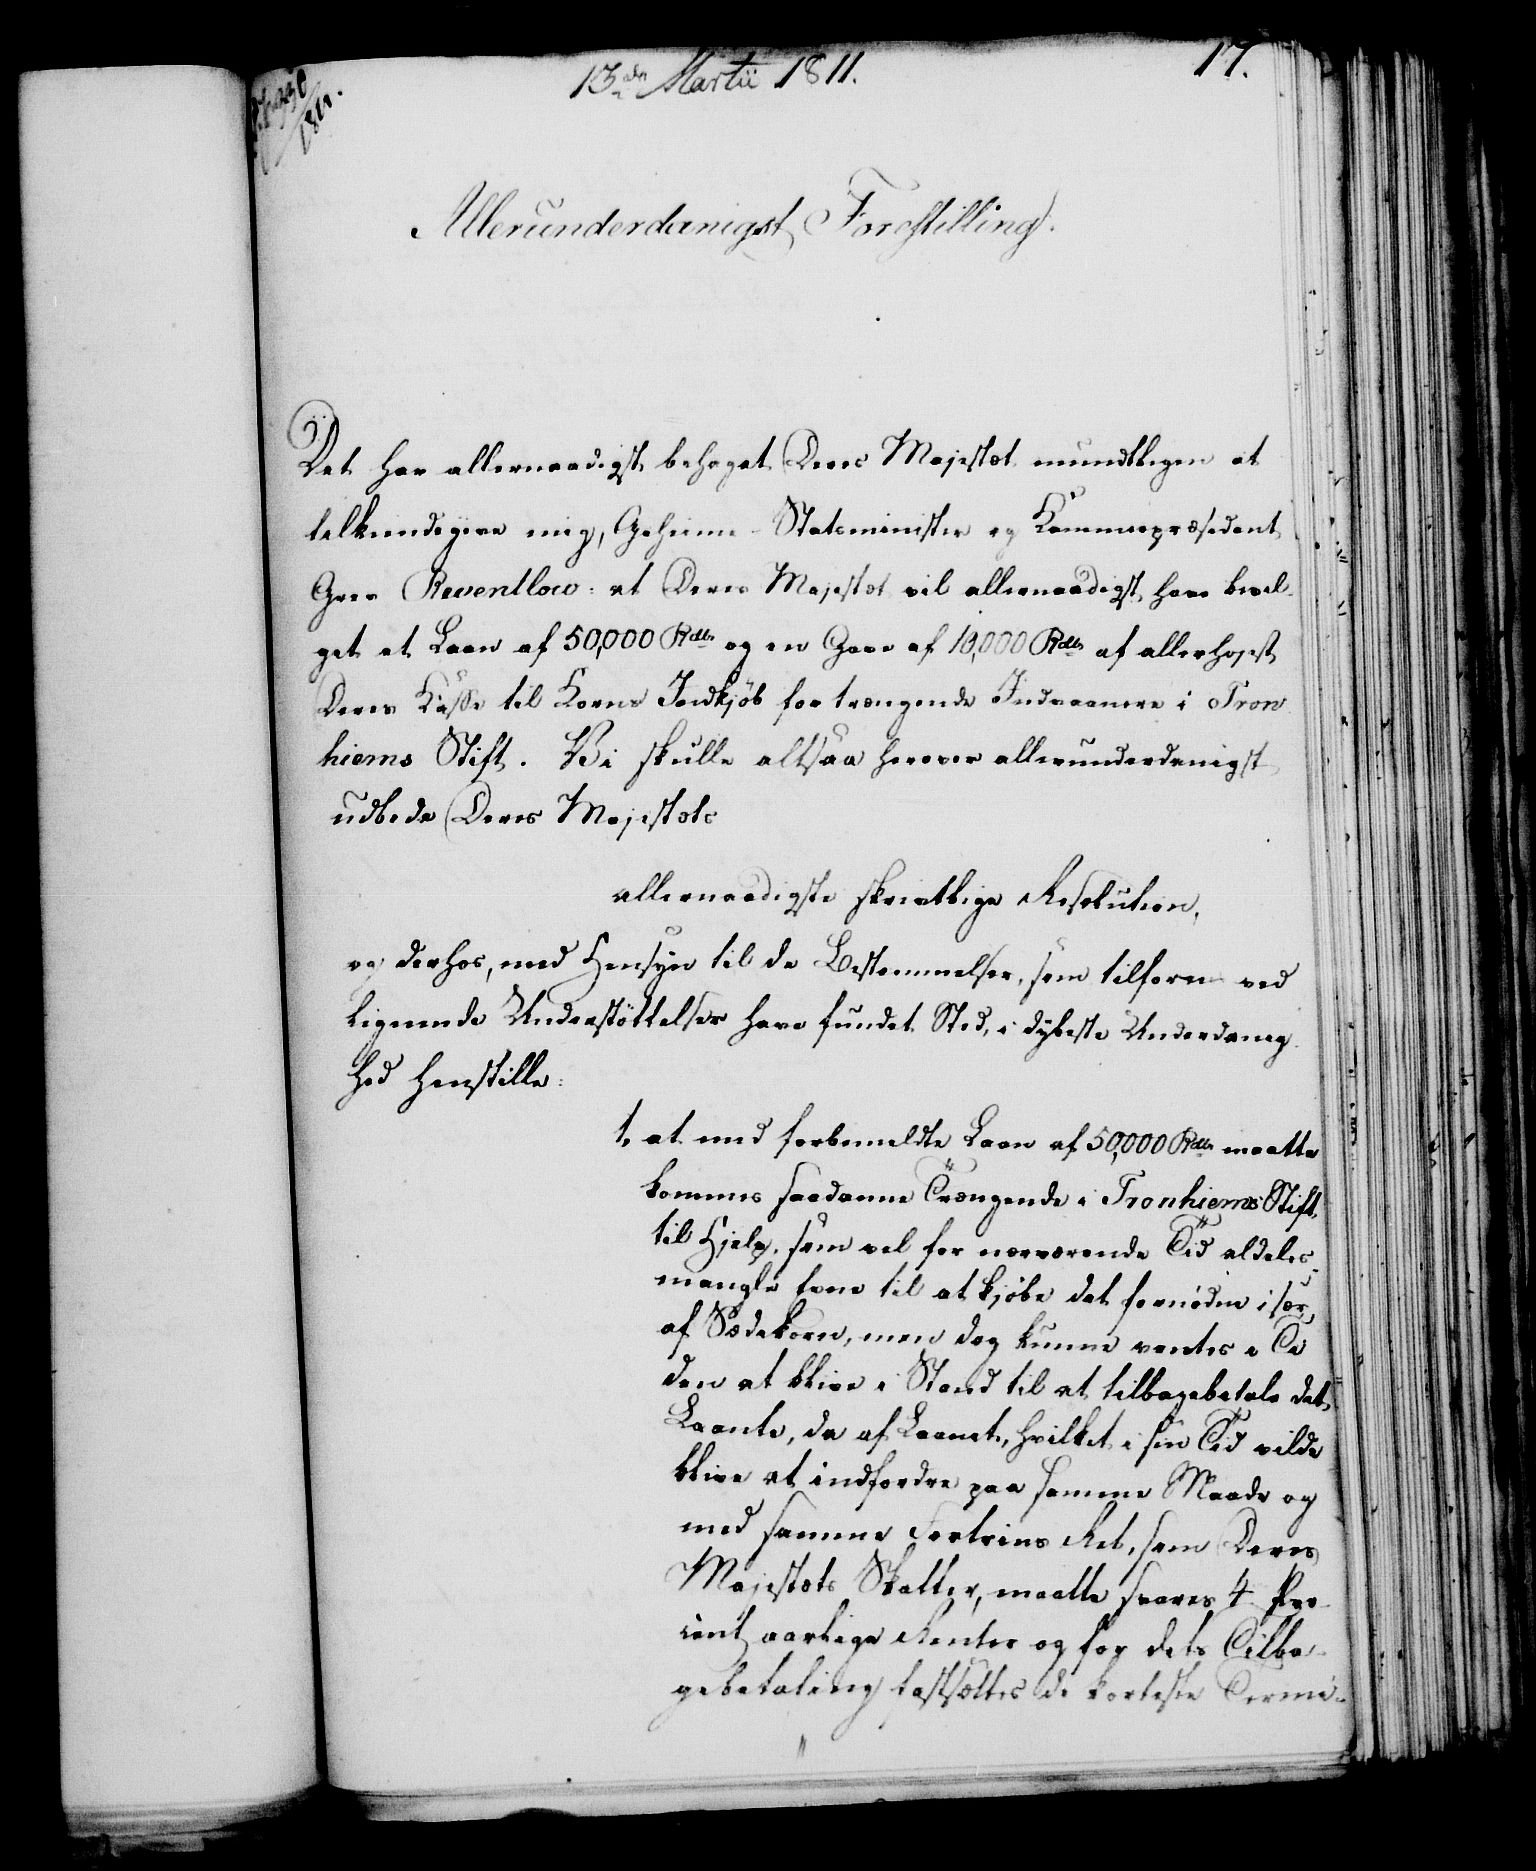 13de Martii 1811.
17.
1811.
Allerunderdanigst Forestilling.
Det har allernaadigst behaget Deres Majestæt mundtligen at
tilkiendegive mig, Geheime-Statsminister og Kammerpræsident
Greve Reventlow: at Deres Majestæt vil allernaadigst have bevil-
get et Laan af 50,000 Rdlr og en Gave af 10,000 Rdlr af allerhøjst
Deres Kasse til Korns Indkjöb for trængende Indvaanere i Tron
hiems Stift. Vi skulle altsaa herover allerunderdanigst
udbede Deres Majestæts
allernaadigste skrivtlige Resolution,
og derhos, med Hensyn til de Bestemmelser, som tilforn ved
lignende Understöttelser have fundet Sted, i dybeste Underdanig-
hed henstille:
1, at med forbemeldte Laan af 50,000 Rdlr maatte
kommes saadanne Trængende i Tronhiems Stift
til Hjelp, som vel for nærværende Tid aldeles
mangle Evne til at kjöbe det fornödne især
af Sædekorn, men dog kunne ventes i Ti
den at blive i Stand til at tilbagebetale det
Laante, da af Laanet, hvilket i sin Tid vilde
blive at indfordre paa samme Maade og
med samme Fortrins Ret, som Deres
Majestæts Skatter, maatte svares 4 Pro-
cent aarlige Renter og for dets Tilba-
gebetaling fastsættes de korteste Termi-